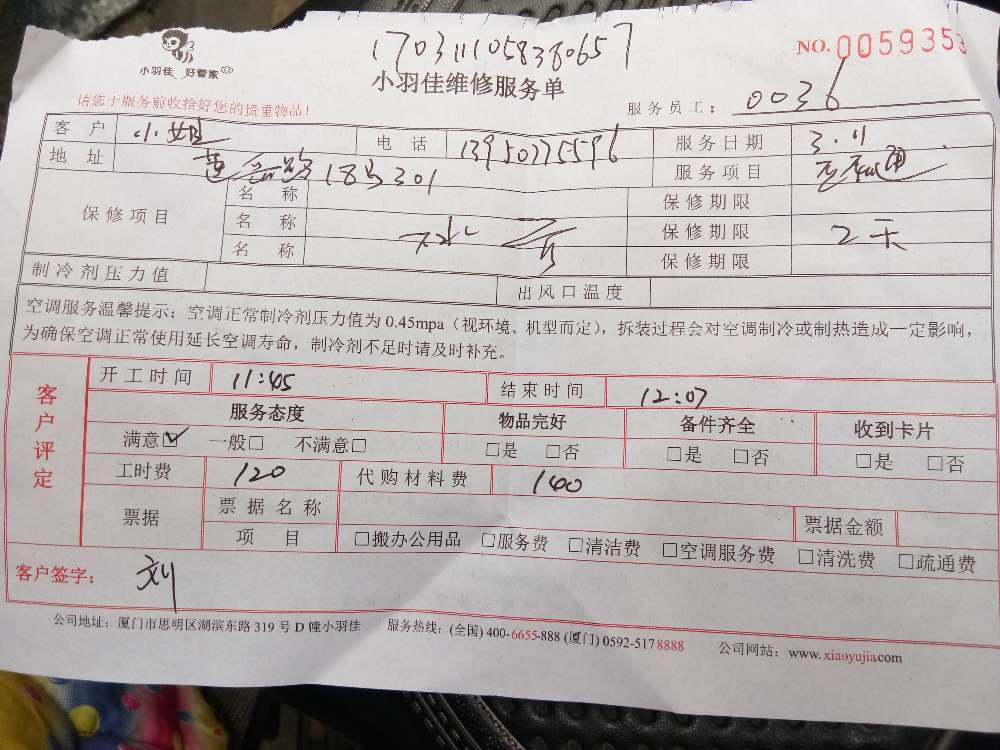 1703111058380657
NO. 0059353
小羽佳 好管家
小羽佳维修服务单
请您于服务前收拾好您的贵重物品！
服务员工： 0036
客户 小姐 电话 13950775596 服务日期 3.11
地址 18号301 服务项目
保修项目 名称 保修期限
名称 保修期限 2天
名称 保修期限
制冷剂压力值 出风口温度
空调服务温馨提示：空调正常制冷剂压力值为 0.45mpa（视环境、机型而定），拆装过程会对空调制冷或制热造成一定影响，
为确保空调正常使用延长空调寿命，制冷剂不足时请及时补充。
客户评定
开工时间 11:45 结束时间 12:07
服务态度 物品完好 备件齐全 收到卡片
满意☑ 一般□ 不满意□ □是 □否 □是 □否 □是 □否
工时费 120 代购材料费 140
票据 票据名称 票据金额
项目 □搬办公用品 □服务费 □清洁费 □空调服务费 □清洗费 □疏通费
客户签字： 刘
公司地址：厦门市思明区湖滨东路 319 号 D 幢小羽佳 服务热线：(全国) 400-6655-888 (厦门) 0592-5178888 公司网站：www.xiaoyujia.com